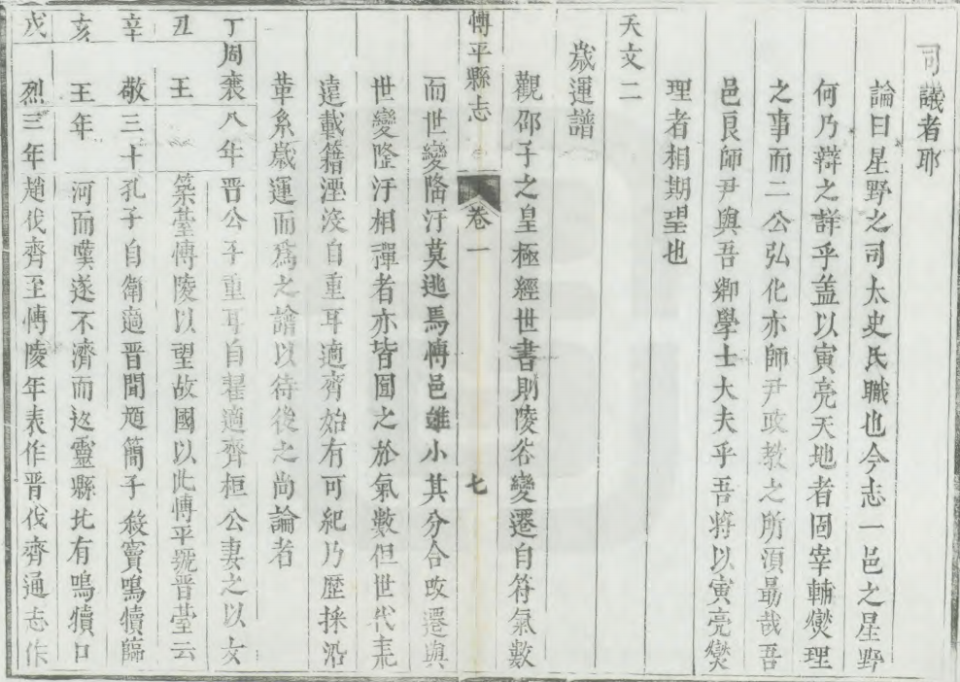 司議者耶
論曰星野之司太史氏職也今志一邑之星野
何乃辯之詳乎盖以寅亮天地者固宰輔燮理
之事而二公弘化亦師尹政教之所須勗哉吾
邑良師尹與吾鄉學士大夫乎吾將以寅亮燮
理者相期望也
天文二
歲運譜
觀邵子之皇極經世書則陵谷變遷自符氣數
而世變隆汙莫逃焉博邑雖小其分合改遷與
世變隆汙相禪者亦皆囿之於氣數但世代
遠載籍湮沒自重耳適齊始有可紀乃歷採沿
革系歲運而爲之譜以待後之尚論者
博平縣志 卷一 七
丁丑 周襄王 八年 晋公子重耳自翟適齊桓公妻之以女
築臺博陵以望故國以此博平號晋臺云
辛亥 敬王 三十年 孔子自衛適晋聞趙簡子殺竇鳴犢臨
河而嘆遂不濟而返靈縣北有鳴犢口
戊 烈 三年 趙伐齊至博陵年表作晋伐齊通志作